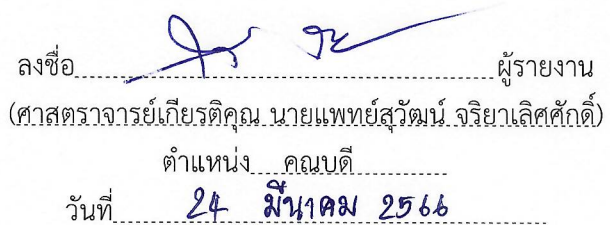 ลงชื่อ ผู้รายงาน
(ศาสตราจารย์เกียรติคุณ นายแพทย์สุวัฒน์ จริยาเลิศศักดิ์)
ตำแหน่ง คณบดี
วันที่ 24 มีนาคม 2566